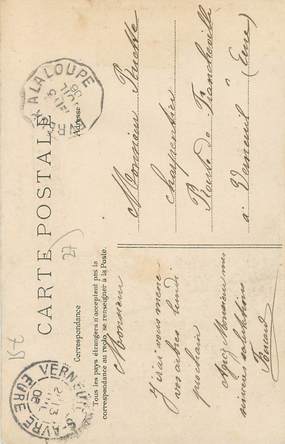 CARTE POSTALE
Tous les pays étrangers n'acceptent pas la
correspondance au recto, se renseigner à la Poste.
Correspondance
Adresse
Monsieur
J'irai vous mener
vos arbres lundi
prochain
Agréez Monsieur mes
sincères salutations
Monsieur
charpentier
Route de Francheville
à Verneuil (Eure)
27
157
A LA LOUPE
VERNEUIL S. AVRE
EURE